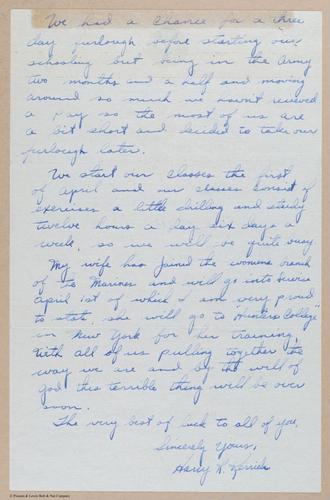 We had a chance for a three
day furlough before starting our
schooling but being in the army
two months and a half and moving
around so much we havn't recieved
a pay so the most of us are
a bit short and decided to take our
furlough later.
We start our classes the first
of April and our classes consist of
exercises a little drilling and study
twelve hours a day six days a
week, so we will be quite busy
My wife has joined the womens branch
of the Marines and will go into service
April 1st of which I am very proud
to state, she will go to Hunters College
in New York for her training,
With all of us pulling together the
way we are and by the will of
god this terrible thing will be over
soon.
The very best of luck to all of you,
Sincerely Yours,
Harry
© Pioneer & Lewis Bolt & Nut Company